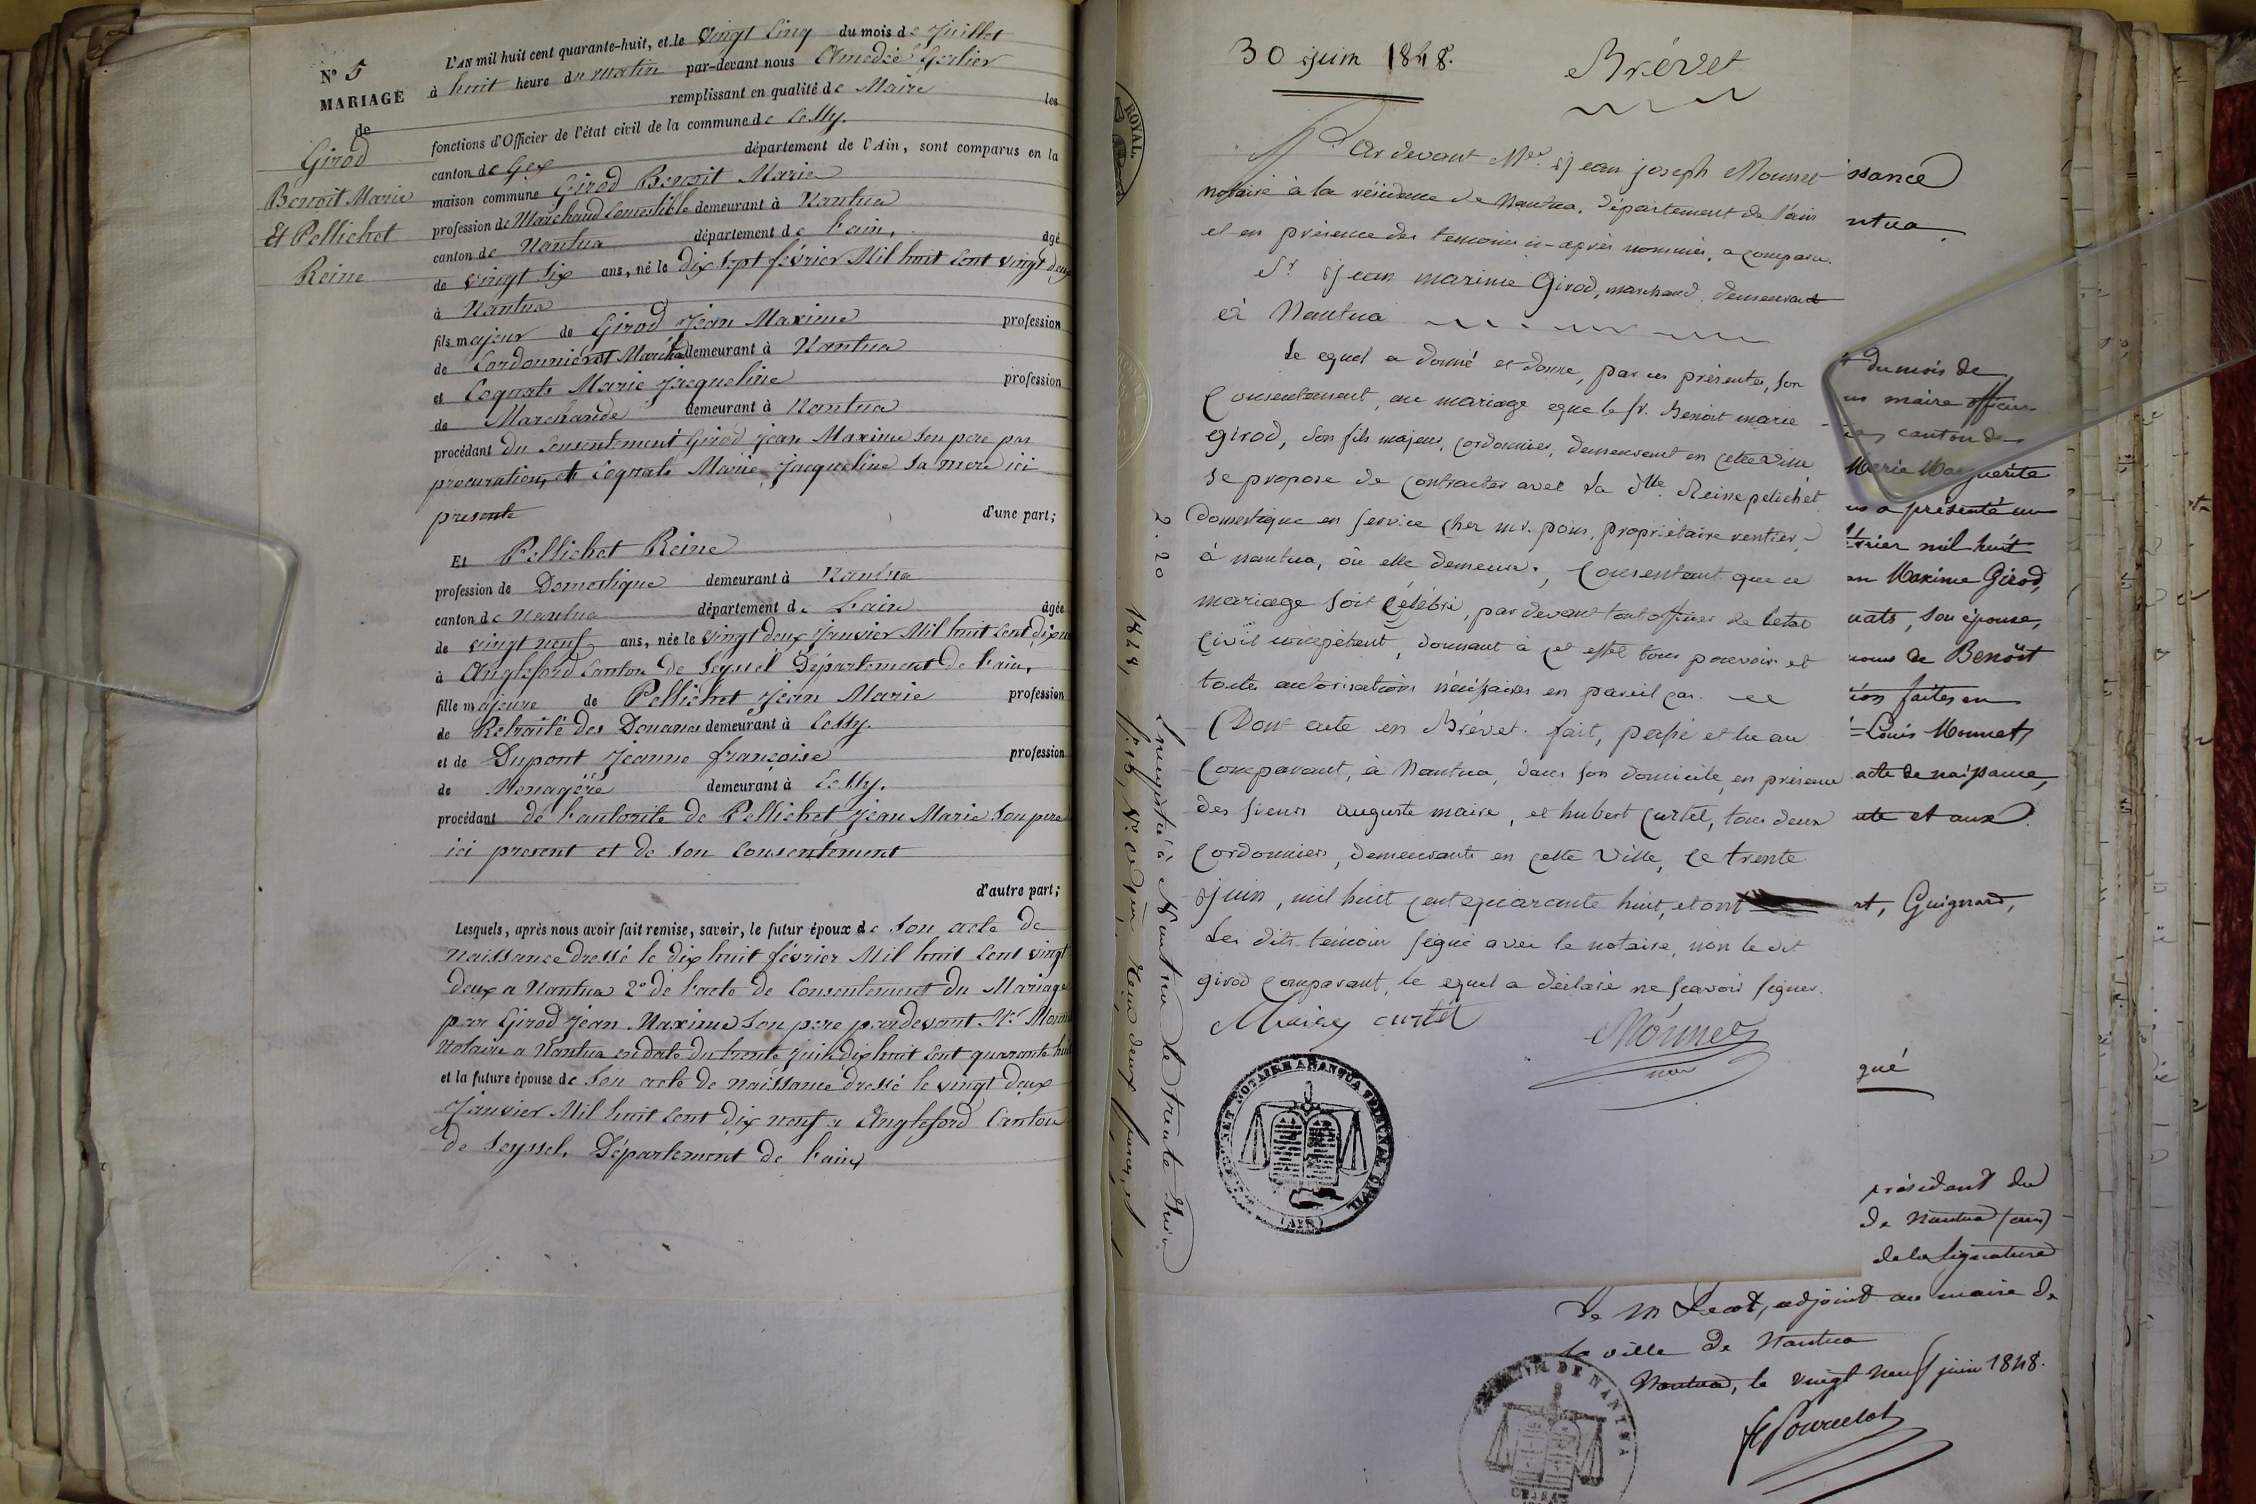 N° 5
MARIAGE
de
Girod
Benoit Marie
Et Pellichet
Reine
L'AN mil huit cent quarante-huit, et le vingt Cinq du mois de Juillet
à huit heure du matin par-devant nous Amedée Gerlier
remplissant en qualité de Maire les
fonctions d'Officier de l'état civil de la commune de Cessy.
canton de Gex département de l'Ain, sont comparus en la
maison commune Girod Benoit Marie
profession de Marchand Comestible demeurant à Nantua
canton de Nantua département de l'ain, âgé
de vingt six ans, né le dix sept février Mil huit Cent vingt deux
à Nantua
fils majeur de Girod Jean Maxime profession
de Cordonnier et March demeurant à Nantua
et Coquats Marie Jacqueline profession
de Marchande demeurant à Nantua
procédant du Consentement Girod Jean Maxime Son pere par
procuration, et Coquats Marie Jacqueline Sa mere ici
presente d'une part;
Et Pellichet Reine
profession de Domestique demeurant à Nantua
canton de Nantua département de L'ain âgée
de vingt neuf ans, née le vingt deux Janvier Mil huit Cent dix
à Angleford Canton de Seyssel Département de l'ain,
fille majeure de Pellichet Jean Marie profession
de Retraité des Douanes demeurant à Cessy.
et de Dupont Jeanne françoise profession
de Menagère demeurant à Cessy.
procédant de l'autorité de Pellichet Jean Marie Son pere
ici present et de Son Consentement
d'autre part;
Lesquels, après nous avoir fait remise, savoir, le futur époux de Son acte de
Naissance Dressé le dix huit février Mil huit Cent vingt
deux a Nantua 2° de l'acte de Consentement du Mariage
par Girod Jean Maxime Son pere pardevant Me Monn
Notaire a Nantua en date du trente Juin dix huit Cent quarante huit
et la future épouse de Son acte de naissance dressé le vingt deux
Janvier Mil huit Cent dix neuf a Angleford Canton
de Seyssel, Département de l'ain
30 juin 1848.
Brévet
Par devant Me. Jean joseph Mounet
notaire à la résidence de Nantua, département de l'ain
et en présence des temoins ci-après nommés, a comparu.
Sr. Jean maxime Girod, marchand, demeurant
à Nantua
Le equel a donné et donne, par ces présentes, son
Consentement, au mariage eque le sr. Benoit marie
girod, son fils majeur, cordonnier, demeurant en cette ville
se propose de contracter avec la Dlle. Reine pelichet
domestique en service cher mr. pons, propriétaire rentier,
à nantua, où elle demeure, consentant que ce
mariage soit célébré, par devant tout officier de l'etat
civil compétent, donnant à cet effet tous pouvoirs et
toutes autorisations nécessaires en pareil cas.
Dont acte en Brévet. fait, passé et lu au
Comparant, à Nantua, dans son domicile, en présence
des sieurs auguste maire, et hubert Curtet, tous deux
Cordonniers, demeurants en cette Ville, Ce trente
Juin, mil huit cent equarante huit, et ont
Les dits témoins signé avec le notaire, non le dit
girod Comparant, le equel a déclaré ne sçavoir signer.
Maire curtet
Mounet
not
NOTAIRE A NANTUA TRIBUNAL CIVIL
(AIN)
ROYAL
Enregistré à Nantua le trente Juin
2.20
ssance
ntua.
du mois de
maire officier
canton de
Marie Marguerite
a présenté un
vrier mil huit
Maxime Girod,
uats, son épouse,
de Benoît
ion faites en
Louis Mounet,
acte de naissance,
ute et aux
rt, Guignard,
gué
président du
de Nantua (ain)
de la signature
de M Lecot, adjoint au maire de
la ville de Nantua
Nantua, le vingt neuf juin 1848.
DE NANTUA